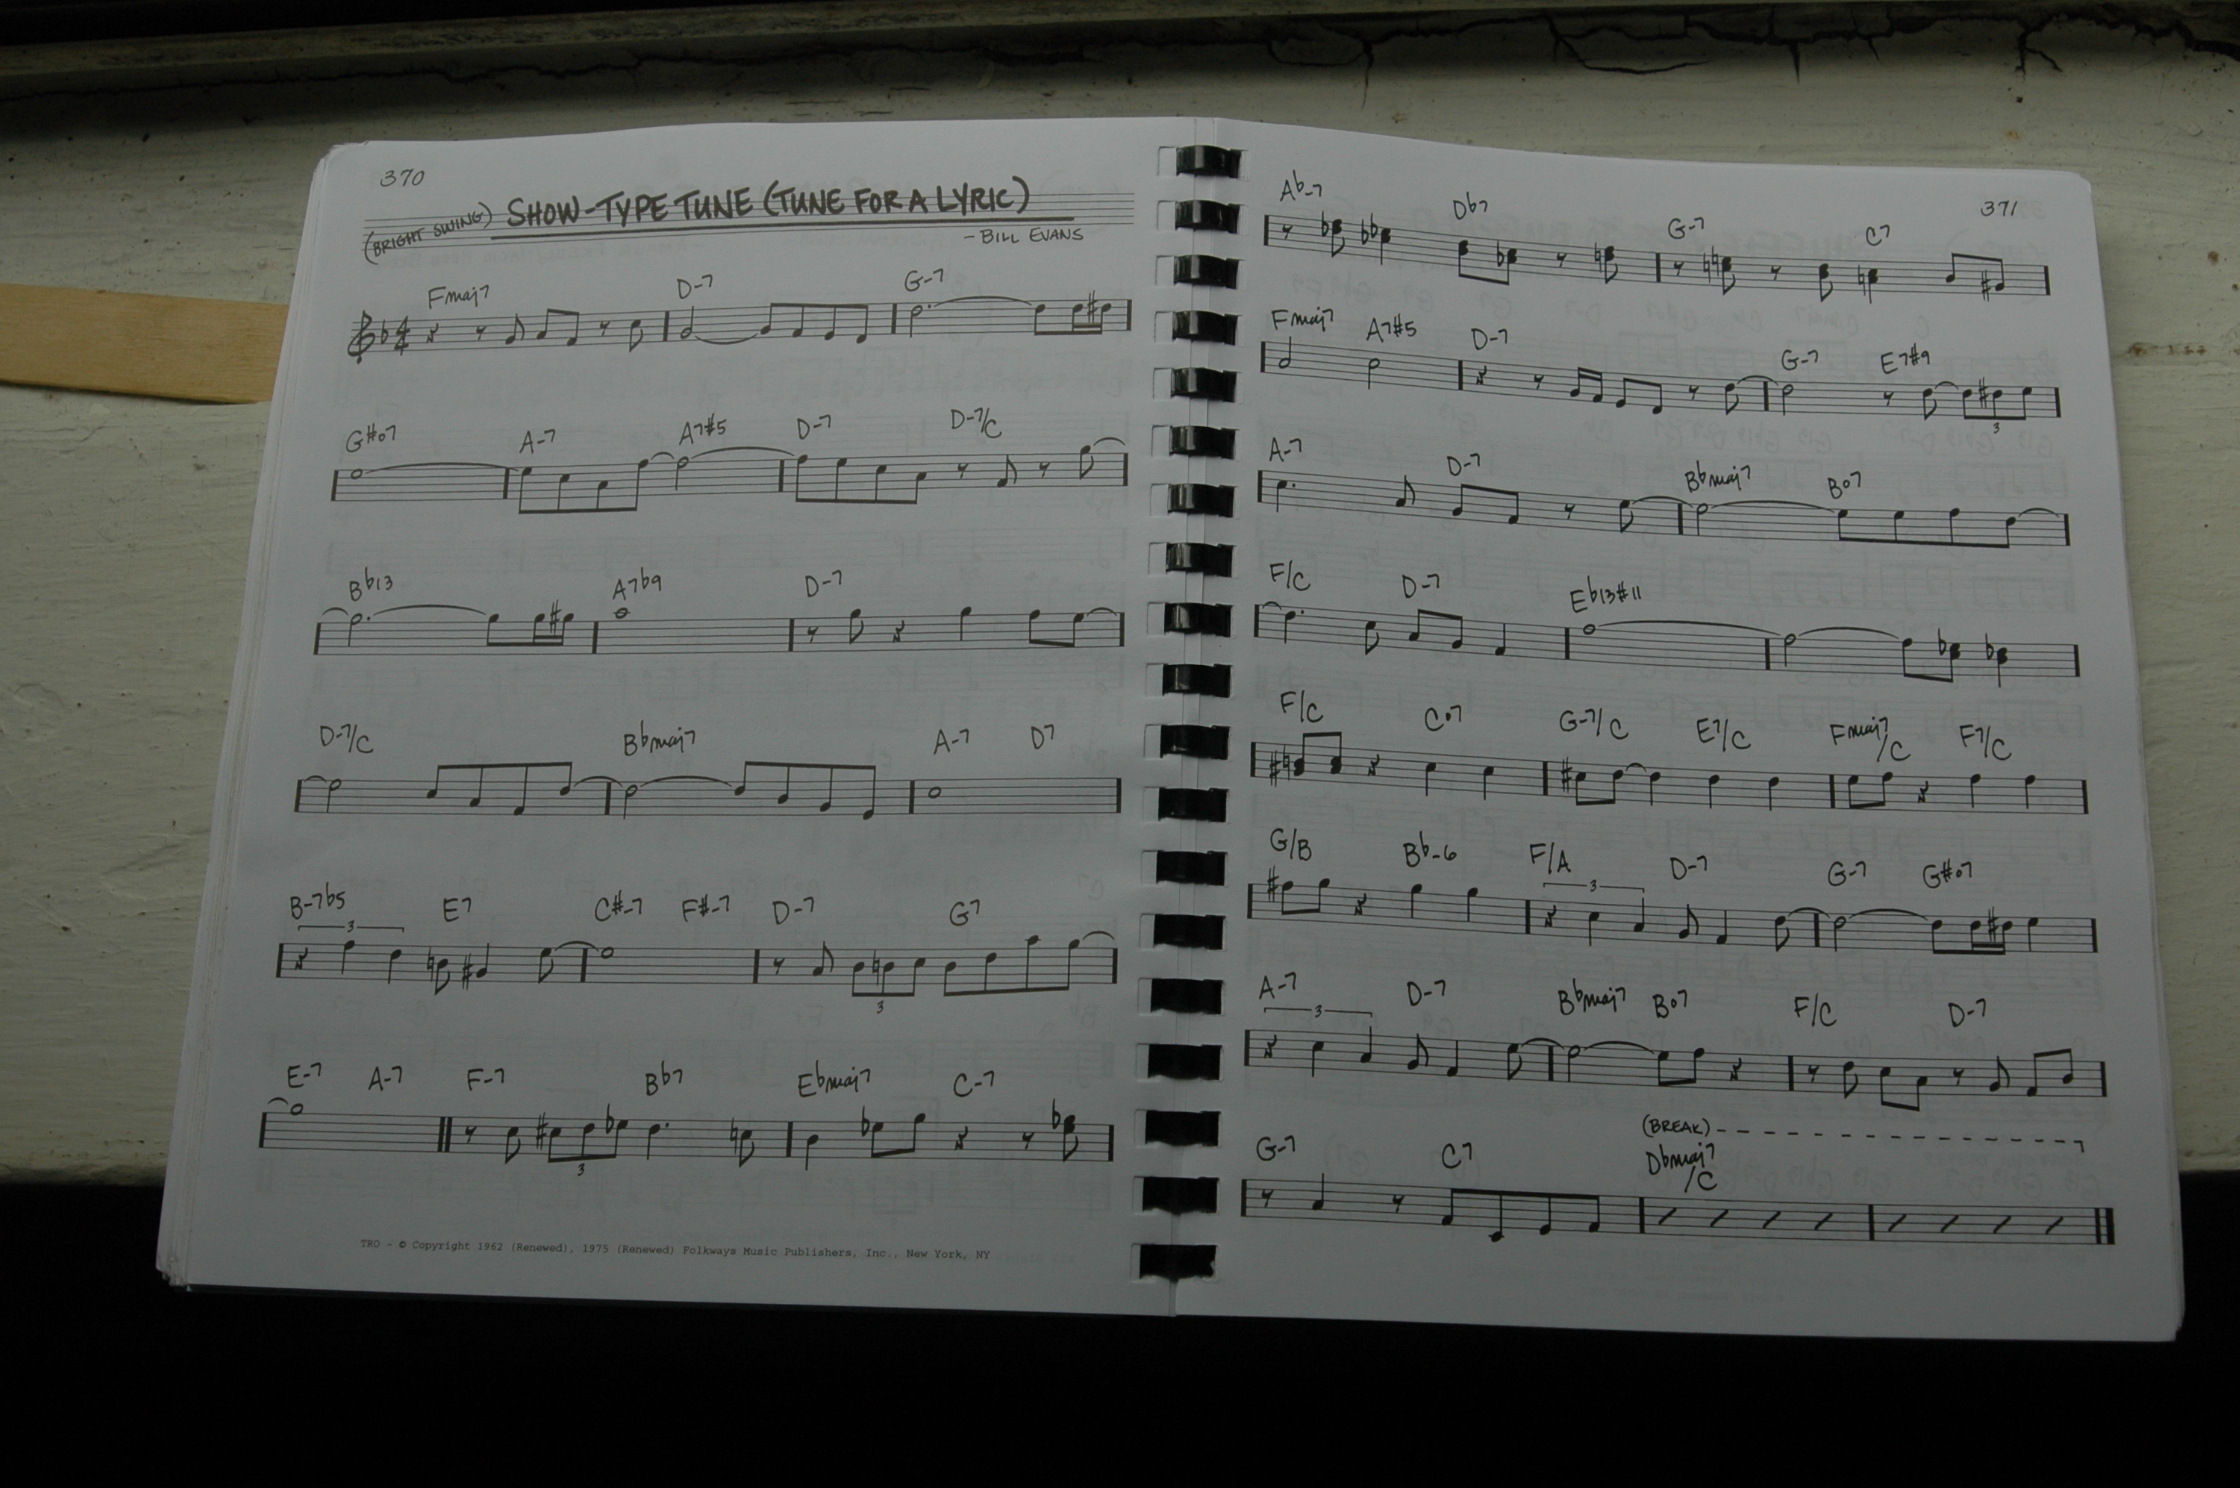 370
(BRIGHT SWING) SHOW-TYPE TUNE (TUNE FOR A LYRIC)
- BILL EVANS
Fmaj7 D-7 G-7
G#o7 A-7 A7#5 D-7 D-7/C
Bb13 A7b9 D-7
D-7/C Bbmaj7 A-7 D7
B-7b5 E7 C#-7 F#-7 D-7 G7
3 3
E-7 A-7 F-7 Bb7 Ebmaj7 C-7
3
TRO - © Copyright 1962 (Renewed), 1975 (Renewed) Folkways Music Publishers, Inc., New York, NY
371
Ab-7 Db7 G-7 C7
Fmaj7 A7#5 D-7 G-7 E7#9
3
A-7 D-7 Bbmaj7 Bo7
F/C D-7 Eb13#11
F/C Co7 G-7/C E7/C Fmaj7/C F7/C
G/B Bb-6 F/A D-7 G-7 G#o7
3
A-7 D-7 Bbmaj7 Bo7 F/C D-7
3
(BREAK)
G-7 C7 Dbmaj7/C